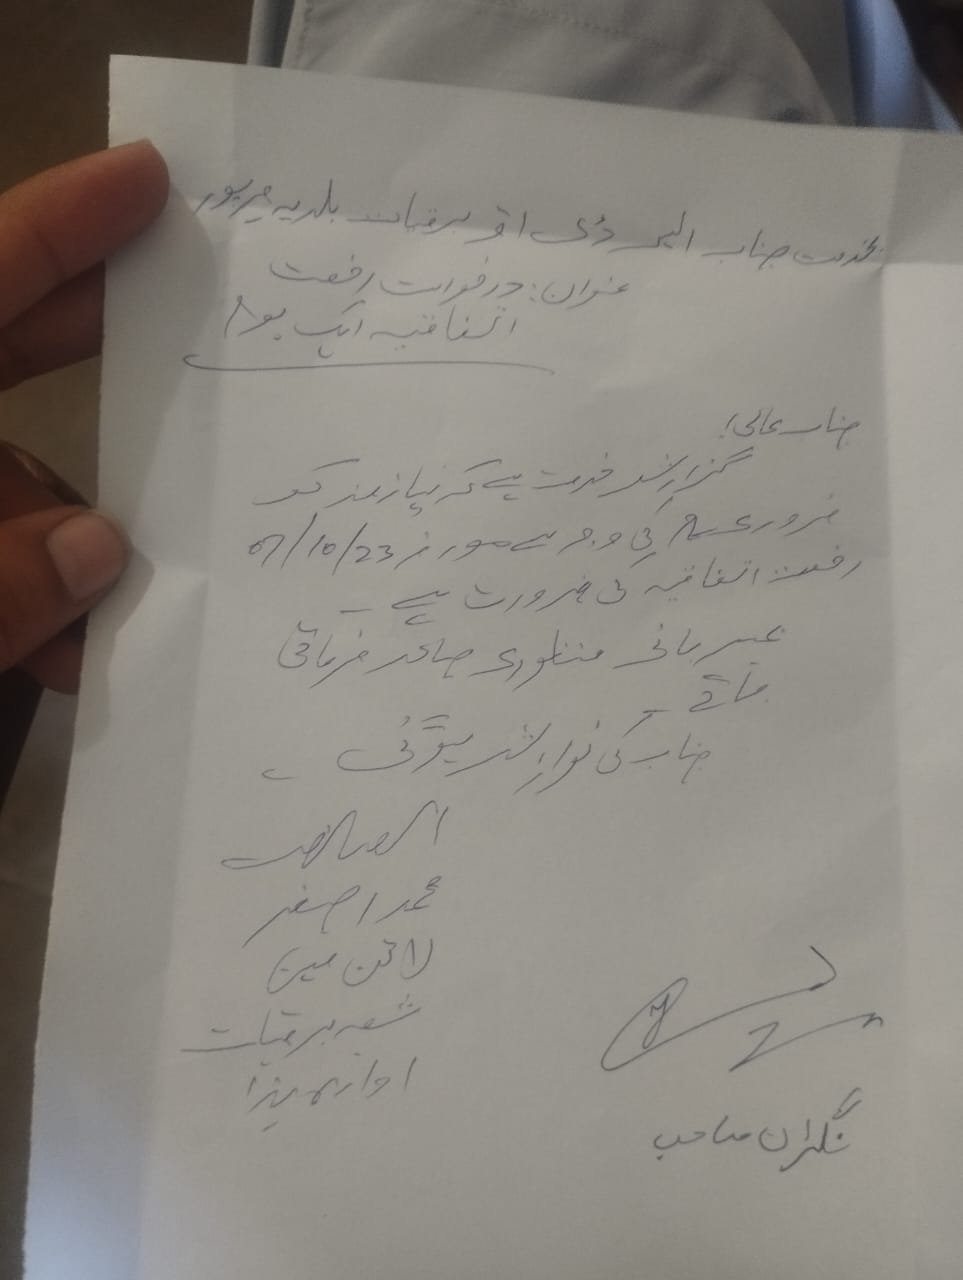 بخدمت جناب ایس ڈی او برقیات بلدیہ میرپور
عنوان: درخواست رخصت
اتفاقیہ ایک یوم
جناب عالی!
گزارش خدمت ہے کہ نیازمند کو
ضروری کام کی وجہ سے مورخہ 07/10/23
رخصت اتفاقیہ کی ضرورت ہے ۔
مہربانی منظوری صادر فرمائی
جائے ۔
جناب کی نوازش ہوگی ۔
العارض
محمد اصغر
لائن مین
شعبہ برقیات
ادارہ ہذا
نگران صاحب